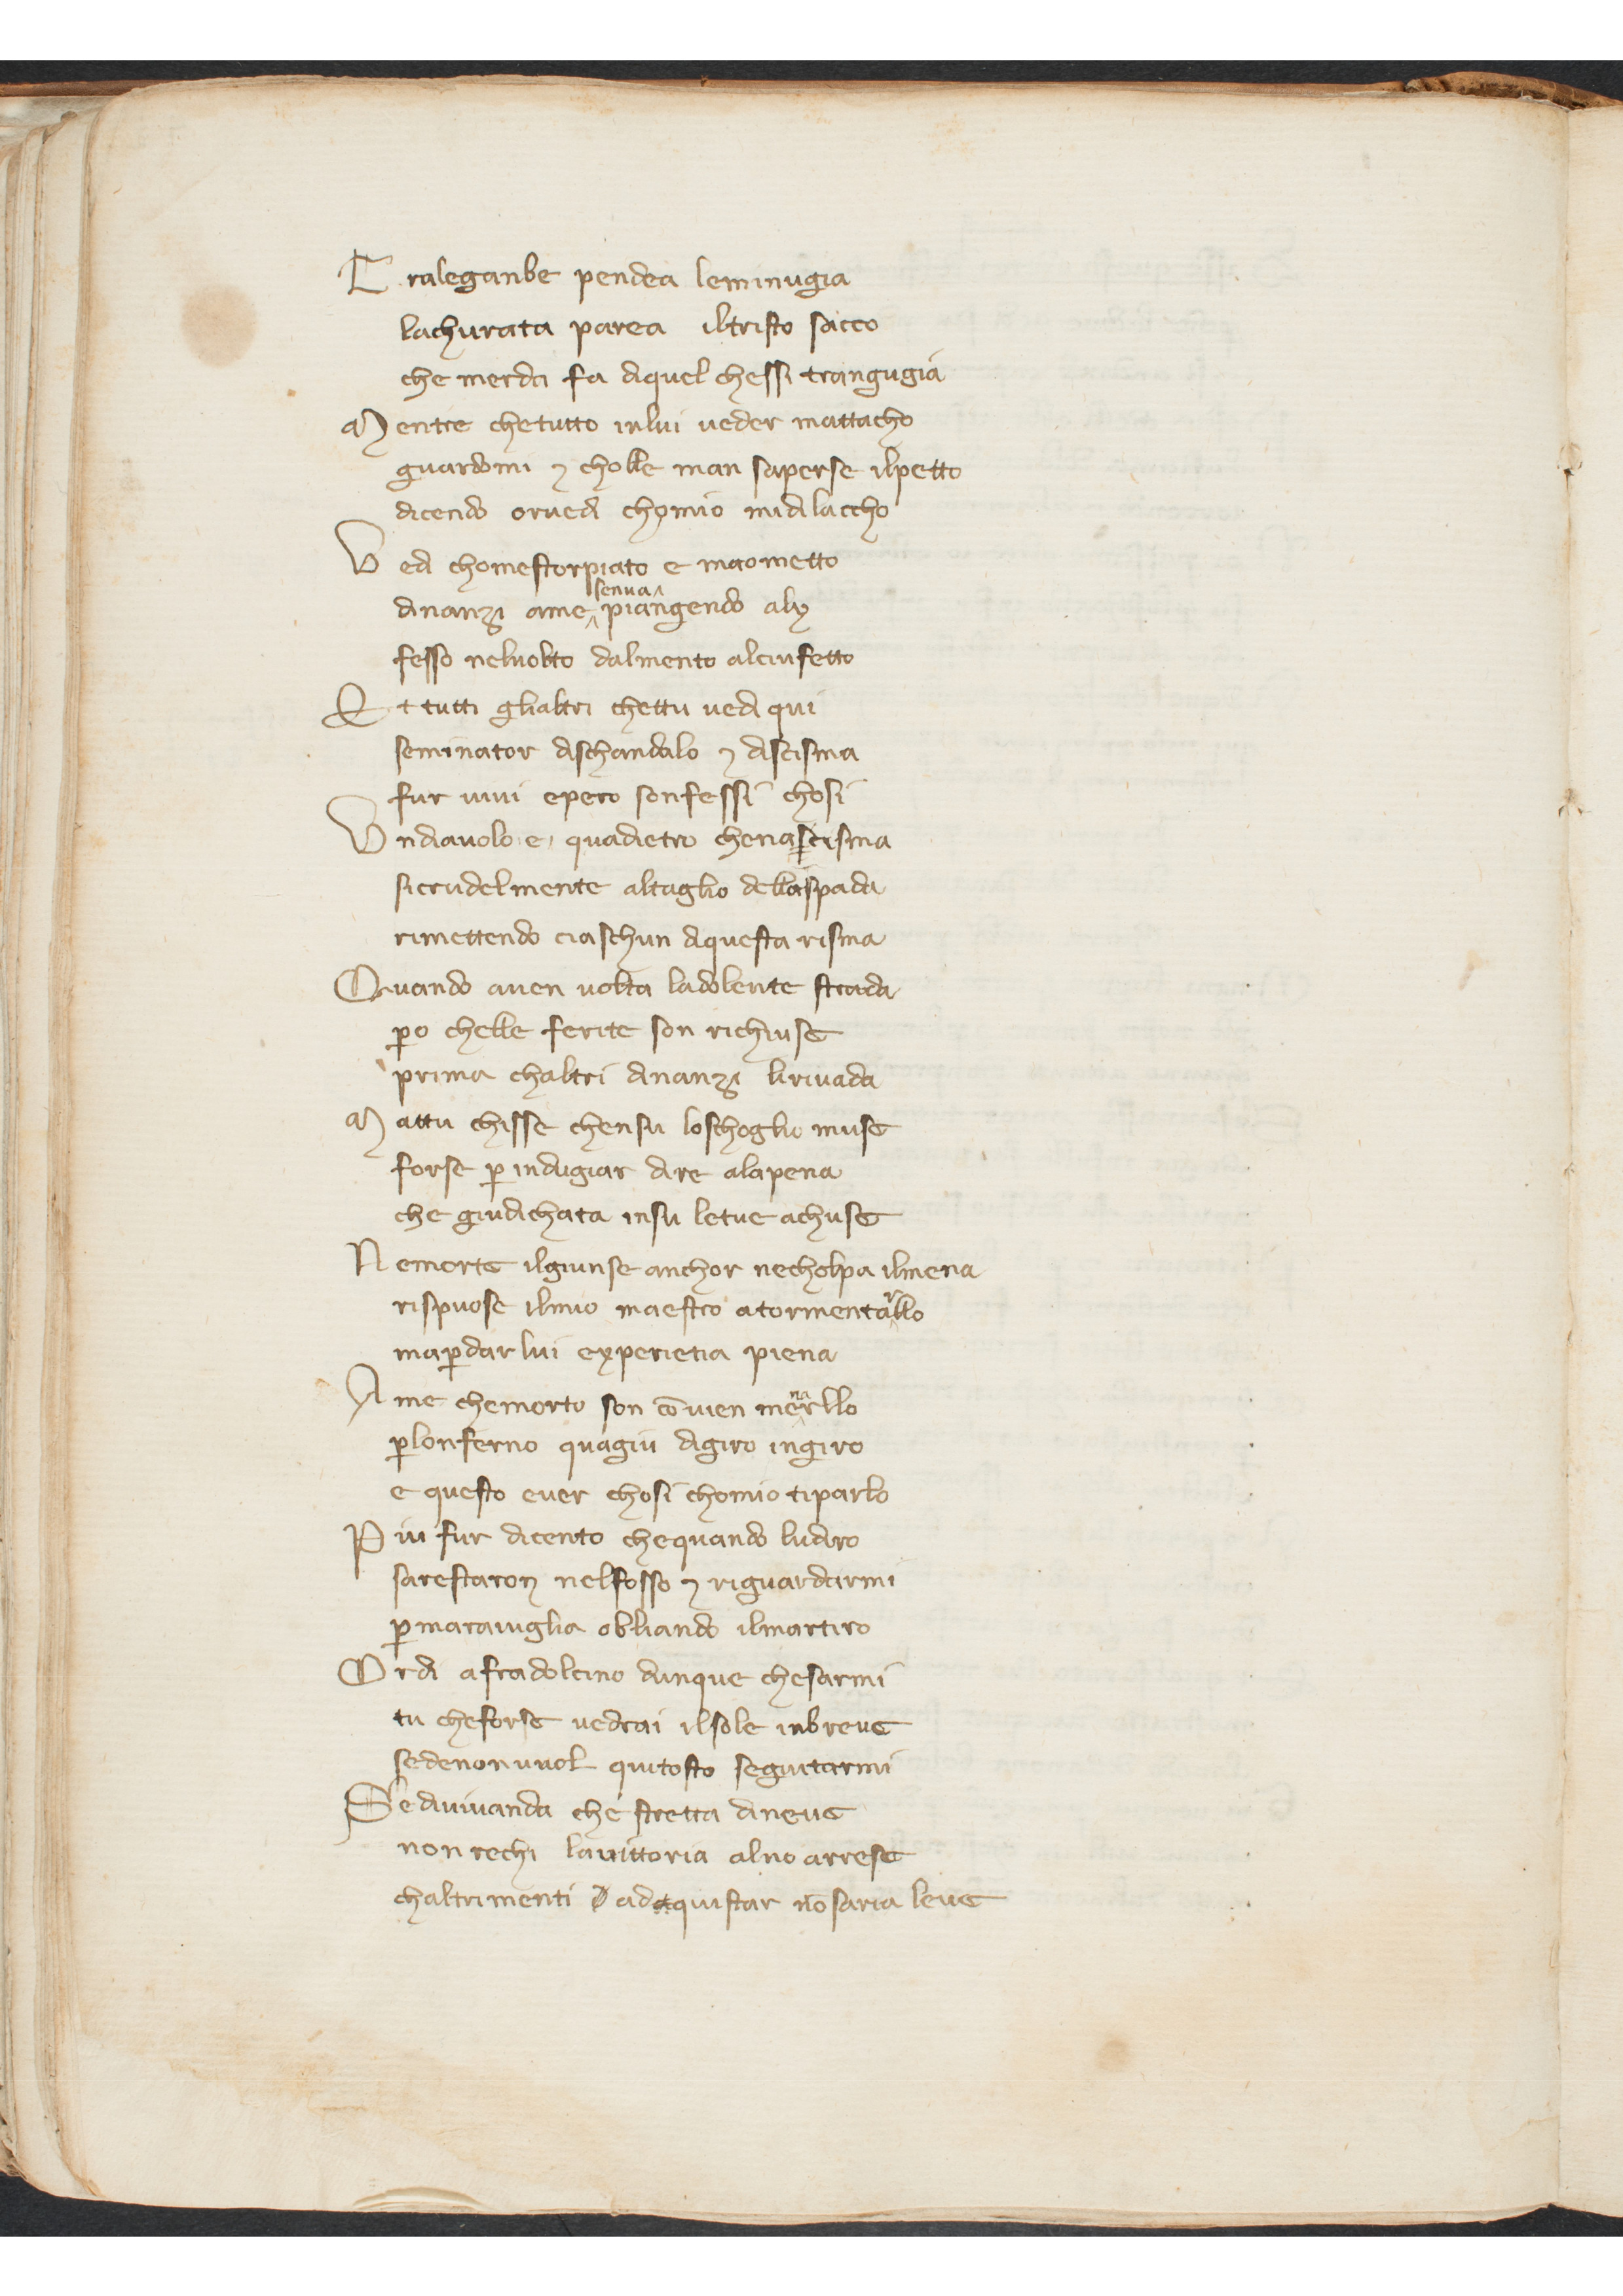 T raleganbe pendea leminugia
lachurata parea iltristo sacco
che merda fa diquel chessi trangugia
M entre chetutto inlui veder mattacho
guardomi ⁊ cholle man saperse ilpetto
dicendo orvedi chomio midilaccho
V edi chomestorpiato e maometto
dinanzi ame senva piangendo aly
fesso neluolto dalmento alciuffetto
E t tutti glialtri chettu vedi qui
seminator dischandalo ⁊ discisma
fur vivi epero sonfessi chosi
V ndiavolo e quadietro chenascisma
sicrudelmente altaglio dellaspada
rimettendo ciaschun diquesta risma
Q uando aven volta ladolente strada
ꝑo chelle ferite son richiuse
prima chaltri dinanzi lirivada
M attu chisse chensu loschoglio muse
forse ꝑ indugiar dire alapena
che giudichata insu letue achuse
N emorte ilgiunse anchor necholpa ilmena
rispuose ilmio maestro atormentarllo
maꝑdar lui experietia piena
A me chemorto son cōvien menarllo
ꝑlonferno quagiu digiro ingiro
e questo ever chosi chomio tiparlo
P iu fur dicento chequando ludiro
sarestaron nelfosso ⁊ riguardarmi
ꝑ maraviglia obliando ilmartiro
O rdi afradolcino dunque chesarmi
tu cheforse vedrai ilsole inbreve
sedenonvuol quitosto seguitarmi
S e divivanda che stretta dineve
non rechi lavittoria alno arrese
chaltrimenti adaquistar nō saria leve